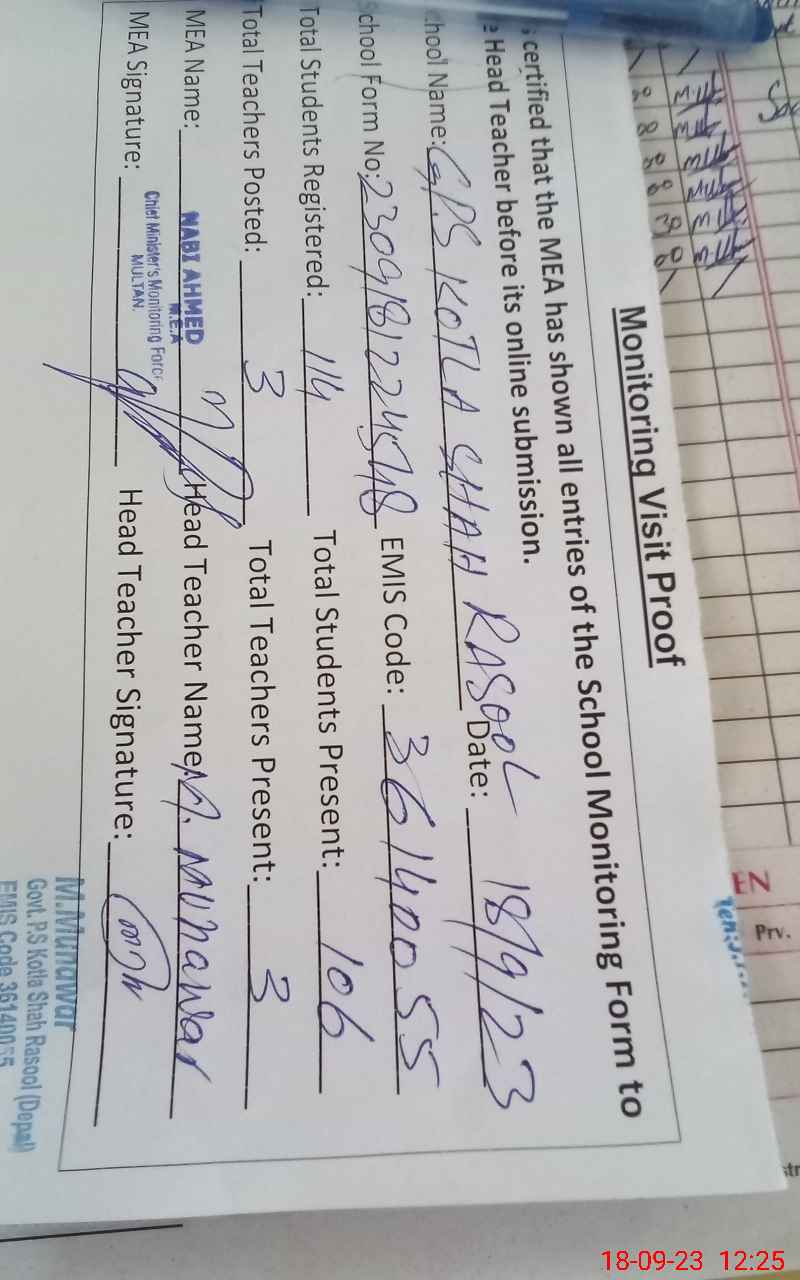 Monitoring Visit Proof
certified that the MEA has shown all entries of the School Monitoring Form to
Head Teacher before its online submission.
hool Name: GPS KOTLA SHAH RASOOL Date: 18/9/23
School Form No: EMIS Code: 36140055
Total Students Registered: 114 Total Students Present: 106
Total Teachers Posted: 3 Total Teachers Present: 3
MEA Name: NABI AHMED Head Teacher Name: M. Munawar
M.E.A
Chief Minister's Monitoring Force
MULTAN.
MEA Signature: Head Teacher Signature:
M.Munawar
Govt. P.S Kotla Shah Rasool (Depal)
EMIS Code 36140055
EN
Prv.
18-09-23 12:25